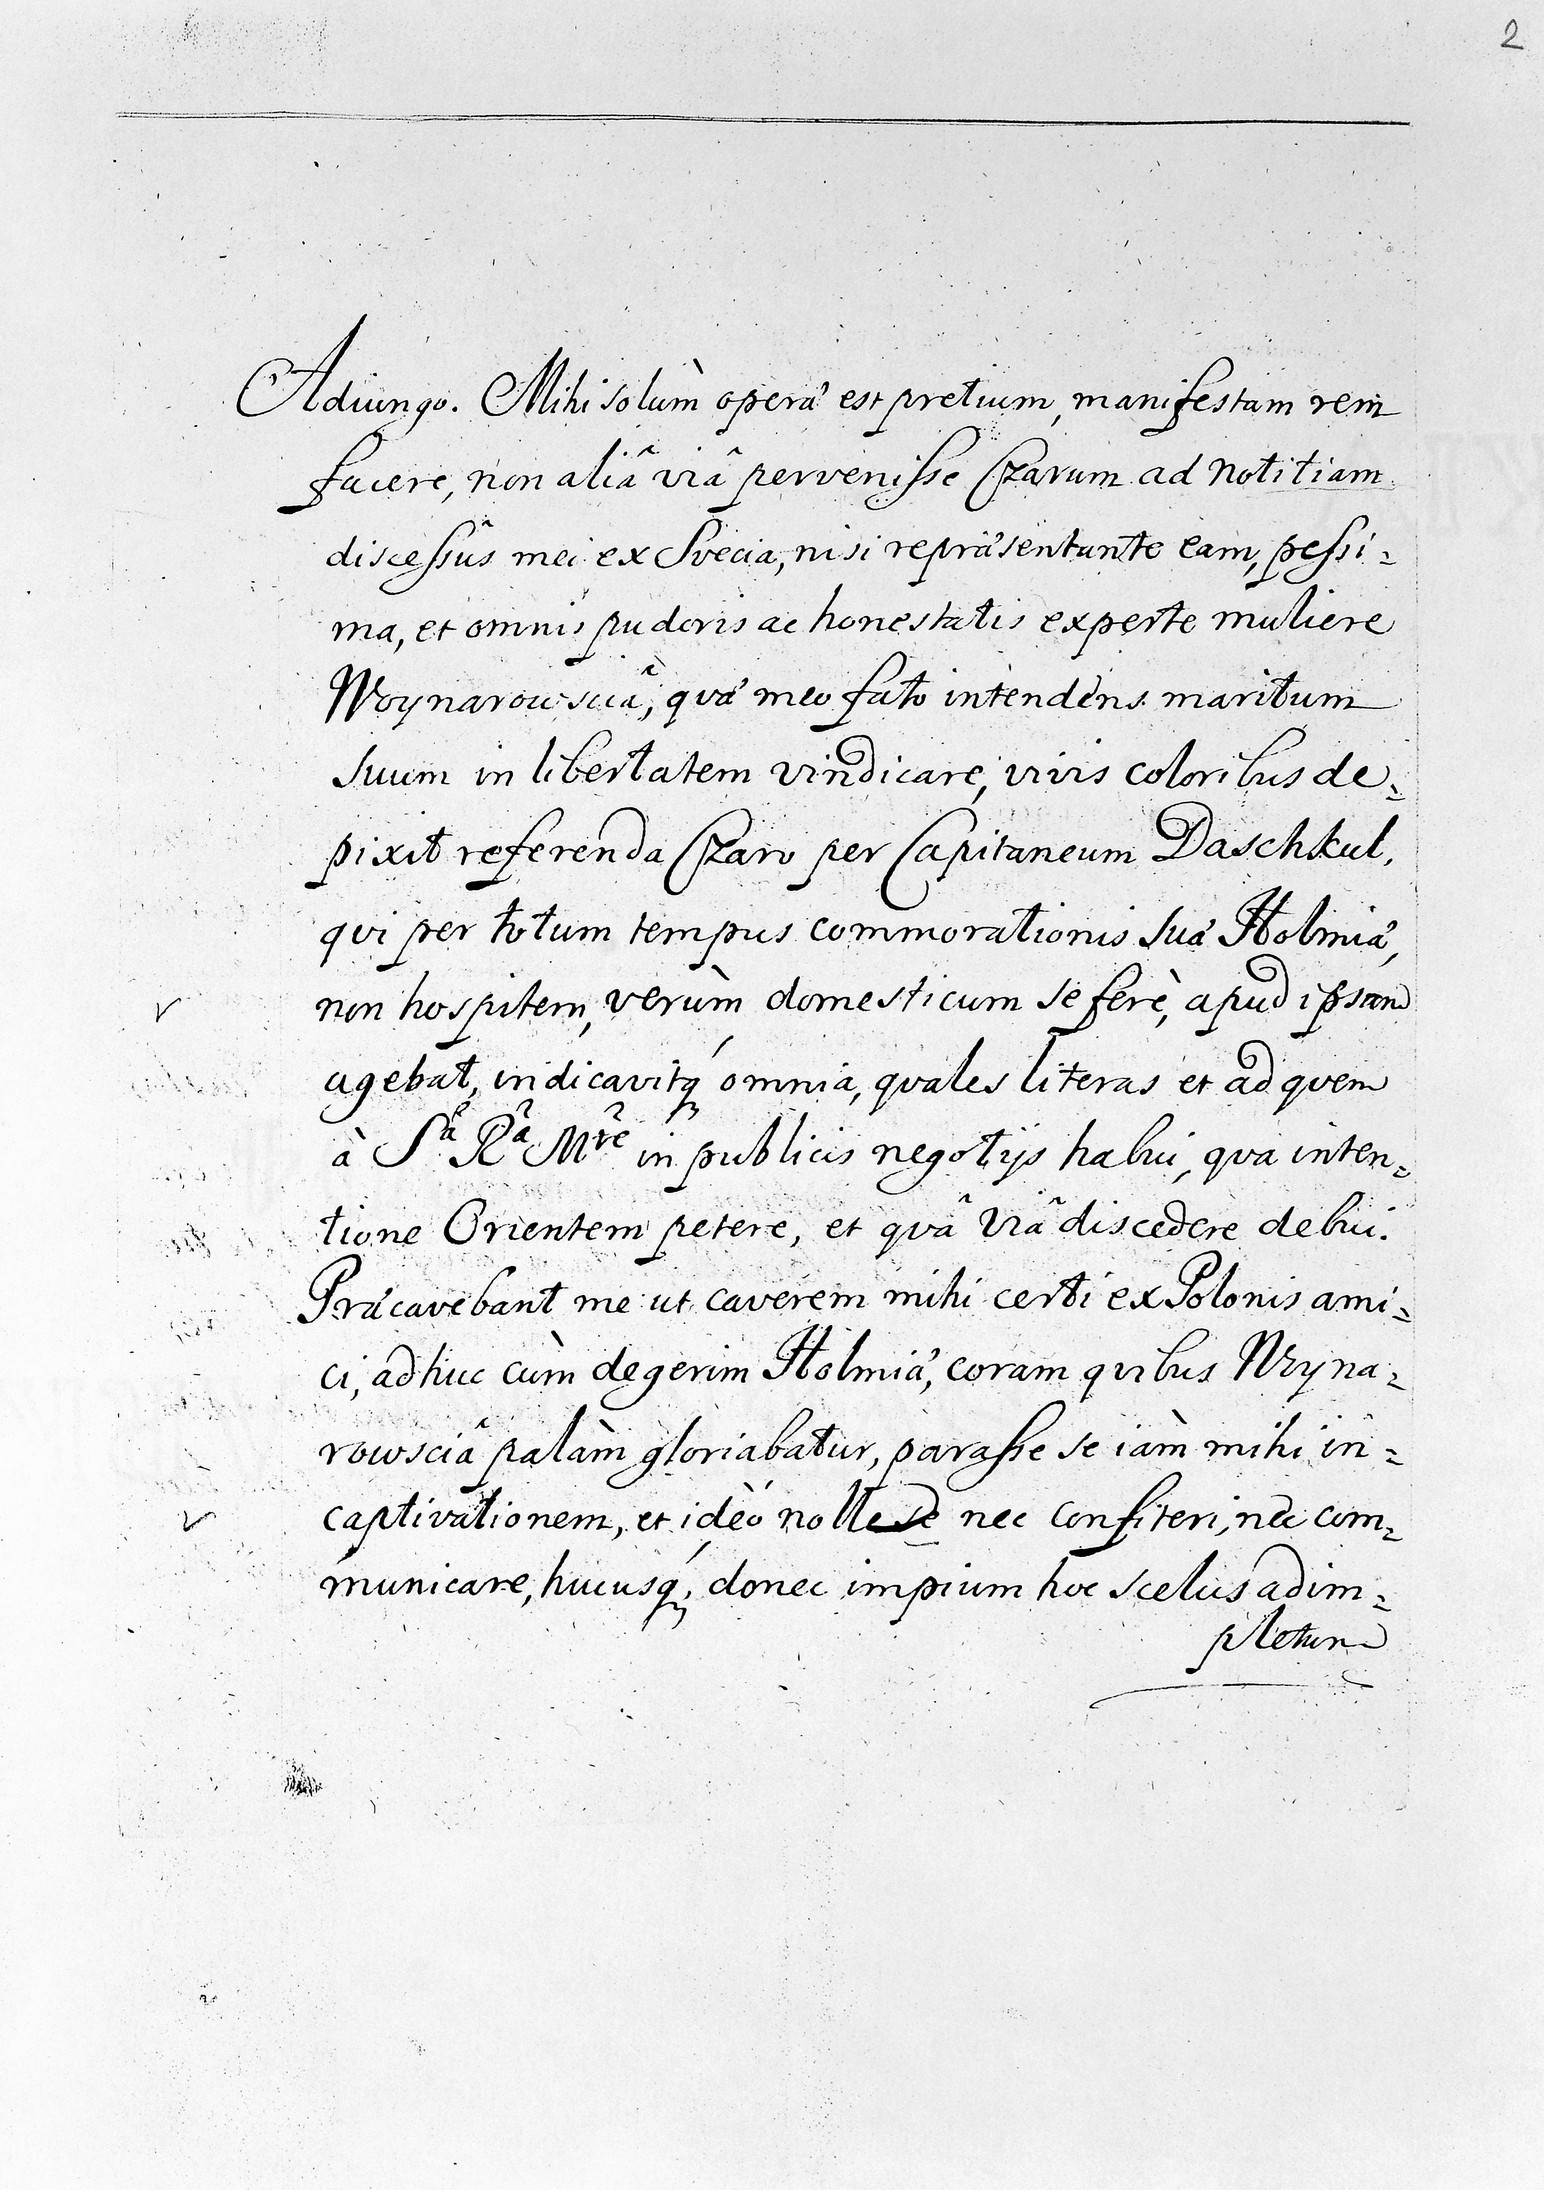 2
Adiungo. Mihi solùm operæ est pretium, manifestam rem
facere, non aliâ viâ pervenisse Czarum ad notitiam
discessûs mei ex Svecia, nisi repræsentante eam, pessi=
ma, et omnis pudoris ac honestatis experte muliere
Woynarowsciâ, quæ meo fato intendens maritum
suum in libertatem vindicare, vivis coloribus de=
pixit referenda Czaro per Capitaneum Daschkul,
qvi per totum tempus commorationis suæ Holmiæ,
non hospitem, verùm domesticum se ferè, apud ipsam
agebat, indicavitq́ omnia, qvales literas et ad qvem
à Sâ Râ Mte in publicis negotijs habui, qva inten=
tione Orientem petere, et qvâ viâ discedere debui.
Præcavebant me ut caverem mihi certi ex Polonis ami=
ci, adhuc cùm degerim Holmiæ, coram qvibus Woyna=
rowsciâ palàm gloriabatur, parasse se iàm mihi in=
captivationem, et ideò nolle se nec confiteri, nec com=
municare, hucusq́, donec impium hoc scelus adim=
pletur